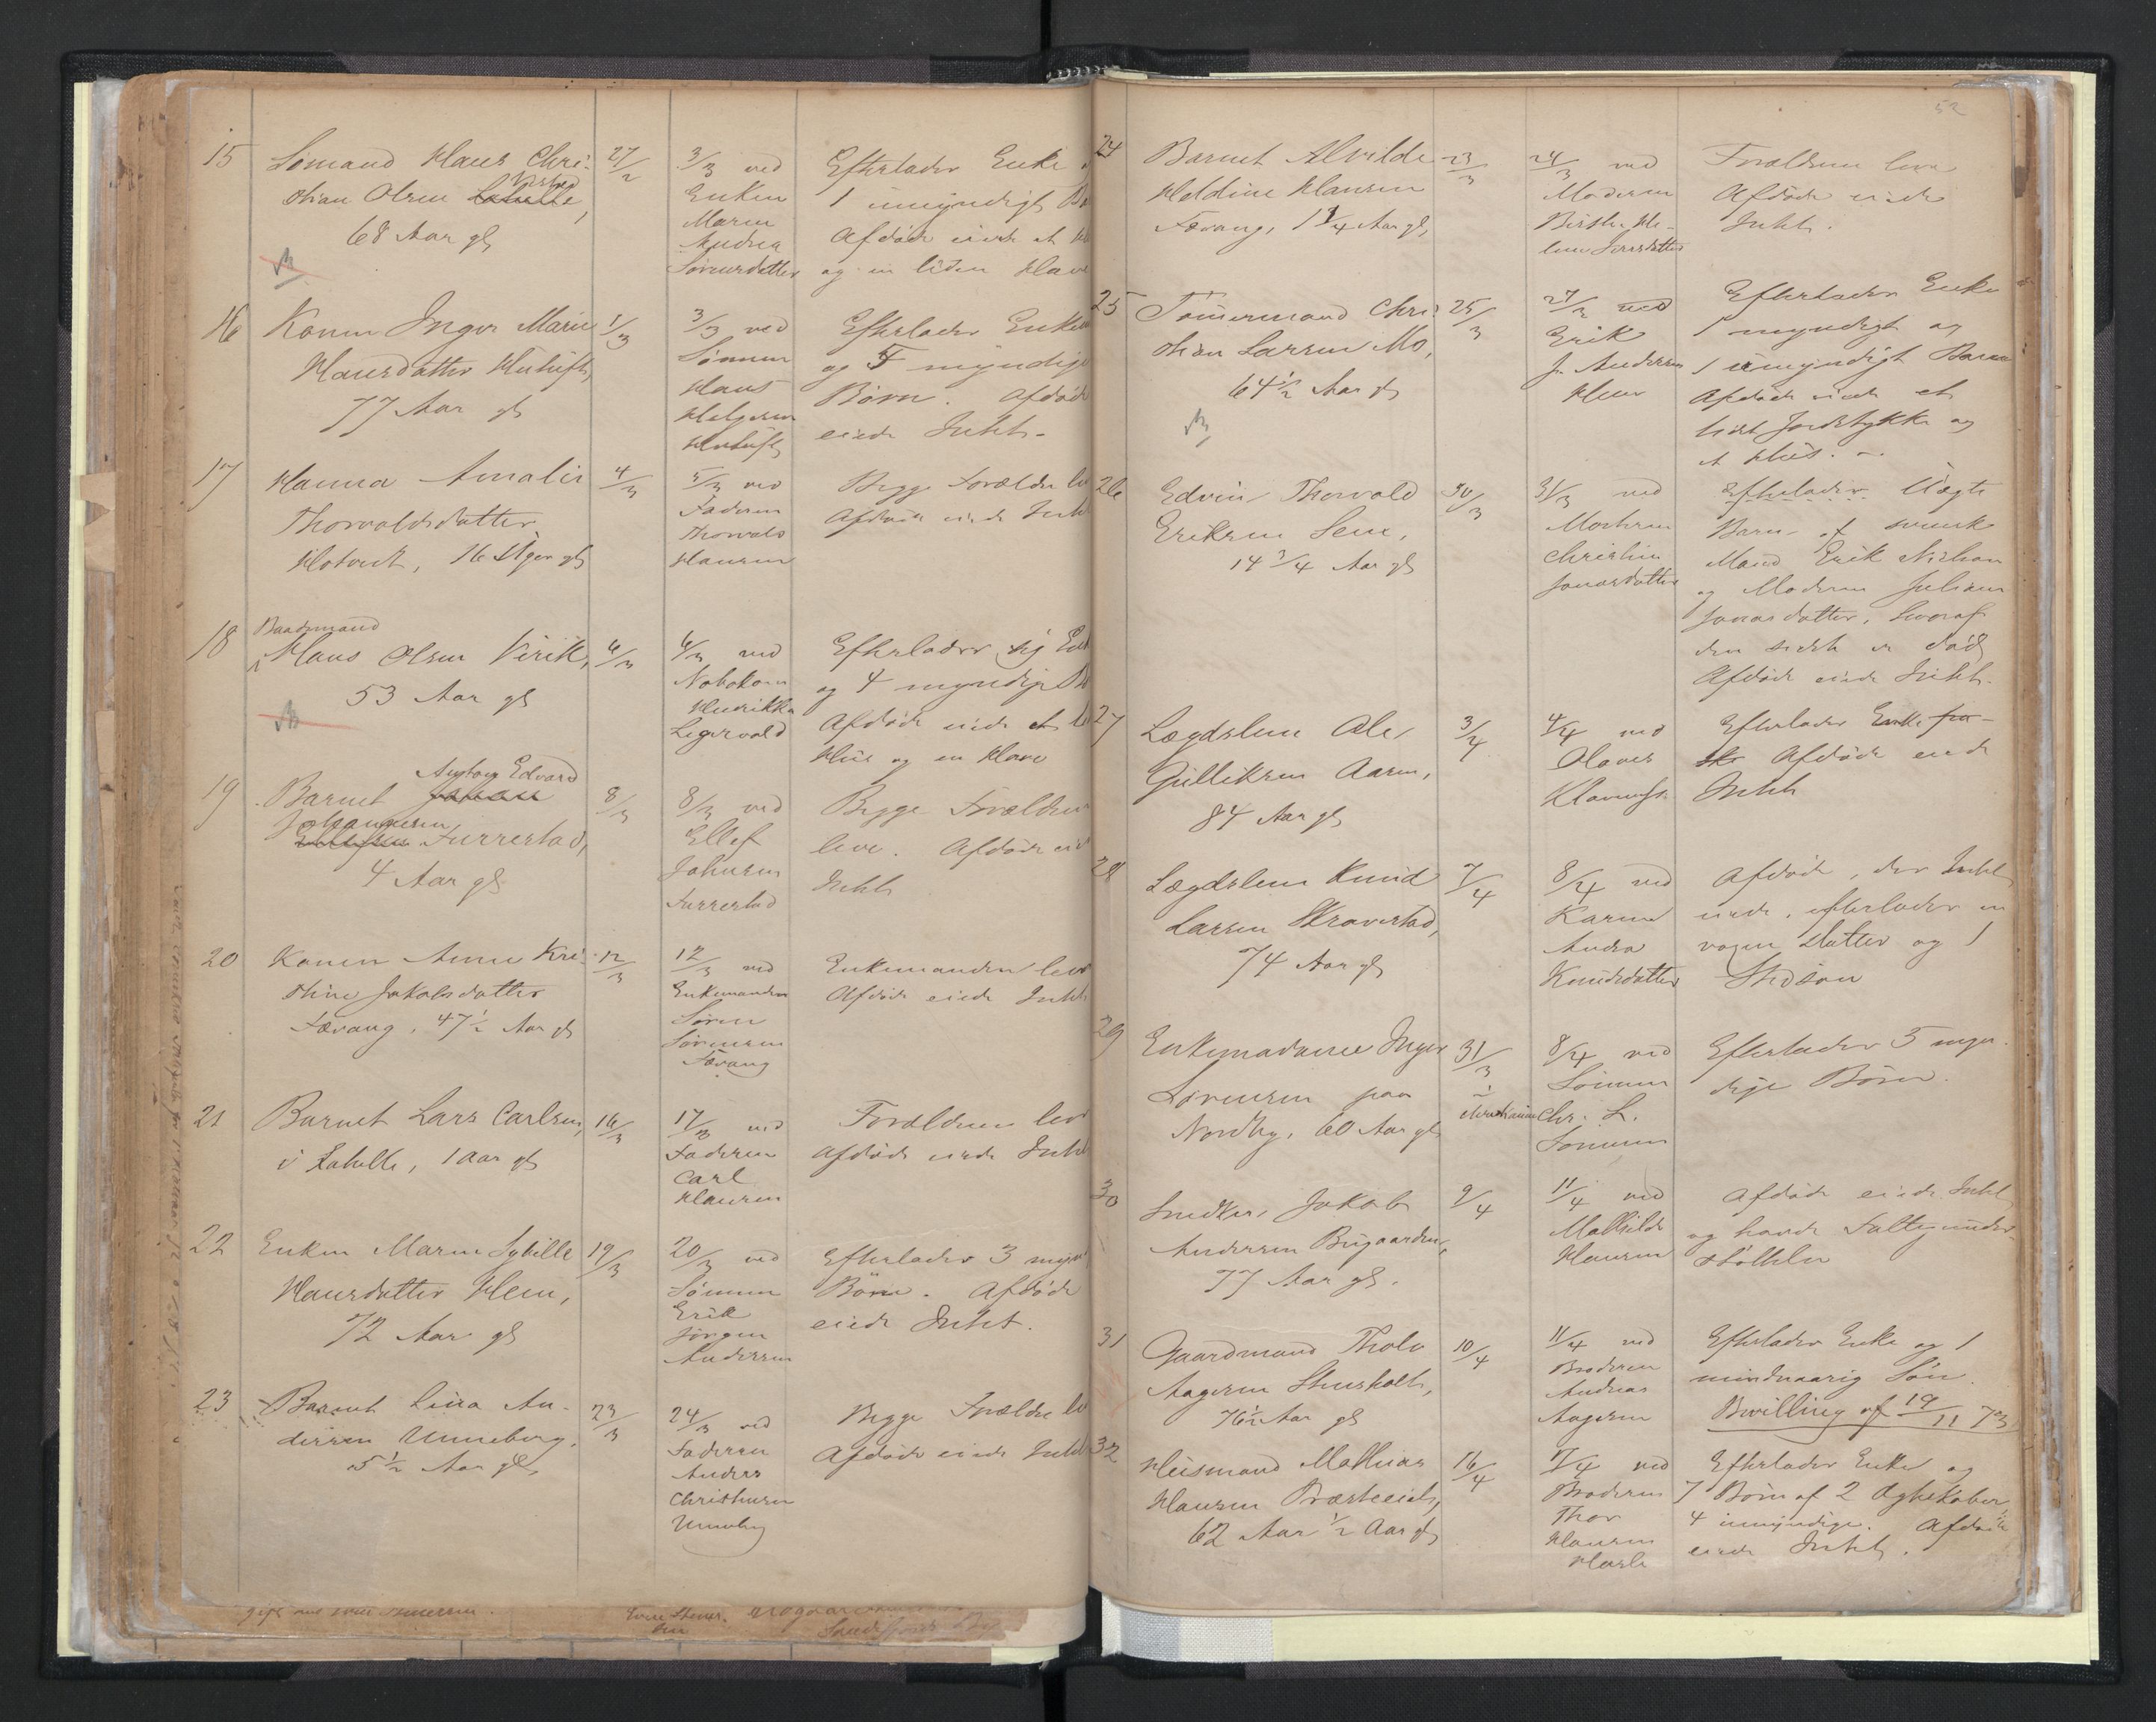 15
Sømand Hans Chri-
stian Olsen Lahelle,
68 Aar gl
27/2
3/3 ved
Enken
Maren
Andrea
Sørensdatter
Efterlader Enke
1 umyndigt
Afdøde eiede et
og en liden Have
16
Konen Inger Marie
Hansdatter
77 Aar gl
1/3
3/3 ved
Sønnen
Hans
Helgesen
Efterlader Enkem
og 5 myndige
Børn. Afdøde
eiede Intet.
17
Hanna Amalie
Thorvaldsdatter
Hotvedt, 16 Uger gl
4/3
5/3 ved
Faderen
Thorvald
Hansen
Begge Forældre lev
Afdøde eiede Intet
18
Baadsmand
Hans Olsen Virik,
53 Aar gl
6/3
6/3 ved
Nabokonen
Henrikka
Legervold
Efterlader sig Enk
og 4 myndige
Afdøde eiede et
Hus og en Have
19
Anton Edvard
Barnet Johan
Johannesen
Ellefsen Furrestad,
4 Aar gl
8/3
8/3 ved
Ellef
Johnsen
Furrestad
Begge Forældre
leve. Afdøde eied
Intet
20
Konen Anne Kri-
stine Jakobsdatter
Fevang, 47½ Aar gl
12/3
12/3 ved
Enkemanden
Søren
Sørensen
Fevang
Enkemanden lever
Afdøde eiede Intet
21
Barnet Lars Carlsen,
i Lahelle, 1 Aar gl
16/3
17/3 ved
Faderen
Carl
Hansen
Forældrene lev
Afdøde eiede Intet
22
Enken Maren Sybille
Hansdatter Hem,
72 Aar gl
19/3
20/3 ved
Sønnen
Erik
Jørgen
Andersen
Efterlader 3 mynd
Børn. Afdøde
eiede Intet.
23
Barnet Lina An-
dersen Unneberg,
5½ Aar gl,
23/3
24/3 ved
Faderen
Anders
Christensen
Unneberg
Begge Forældre le
Afdøde eiede Intet
52
24
Barnet Alvilde
Heldine Hansen
Fevang, 1¾ Aar gl,
23/3
24/3 ved
Moderen
Berthe He-
lene Sørensdatter
Forældrene leve
Afdøde eiede
Intet.
25
Tømmermand Chri-
stian Larsen Mo,
64½ Aar gl
25/3
27/3 ved
Erik
J. Andersen
Hem
Efterlader Enke
1 myndigt og
1 umyndigt Barn
Afdøde eiede et
lidet Jordstykke og
et Hus. -
26
Edvin Thorvald
Eriksen Sem,
14¾ Aar gl
30/3
31/3 ved
Mosteren
Christine
Jonasdatter
Efterlader. Uægte
Barn af svensk
Mand Erik Nielsen
og Moderen Juliane
Jonasdatter, hvoraf
den sidste er død
Afdøde eiede Intet.
27
Lægdslem Ole
Gulliksen Aasen,
84 Aar gl
3/4
4/4 ved
Olaves
Klavenæs
Efterlader Enke fra-
Afdøde eiede
Intet
28
Lægdslem Knud
Larsen Skravestad,
74 Aar gl
7/4
8/4 ved
Karen
Andrea
Knudsdatter
Afdøde, der Intet
eiede, efterlader en
voxen Datter og 1
Stedsøn
29
Enkemadame Inger
Sørensen paa
Nordby, 60 Aar gl
31/3
i
Christiania
8/4 ved
Sønnen
Chr. L.
Sørensen
Efterlader 5 myn-
dige Børn.
30
Snedker Jakob
Andersen Bugaarden,
77 Aar gl.
9/4
11/4 ved
Mathilde
Hansen
Afdøde eiede Intet
og havde Fattigunder-
støttelse
31
Gaardmand Thole
Aagesen Stensholt,
76½ Aar gl
10/4
11/4 ved
Broderen
Andreas
Aagesen
Efterlader Enke og 1
mindreaarig Søn.
Bevilling af 19/11 73
32
Husmand Mathias
Hansen Præsteeie,
62 Aar ½ Aar gl
16/4
17/4 ved
Broderen
Thor
Hansen
Hasle
Efterlader Enke og
7 Børn af 2 Ægteskaber,
4 umyndige. Afdøde
eiede Intet.